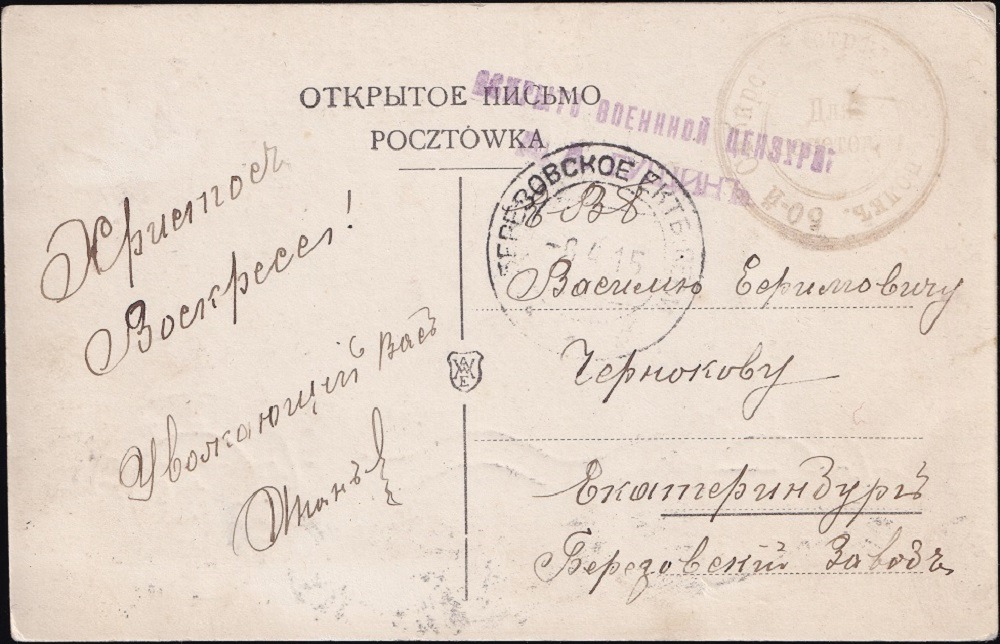 ОТКРЫТОЕ ПИСЬМО
POCZTÓWKA
ВСКРЫТО ВОЕННОЙ ЦЕНЗУРОЙ
БЕРЕЗОВСКОЕ ЕКТБ
-8.4.15
60-й
полкъ.
Христосъ
Воскресе!
Уважающий Васъ
Е В Б
Василию Ефимовичу
Чернокову
Екатеринбургъ
Березовскiй Заводъ